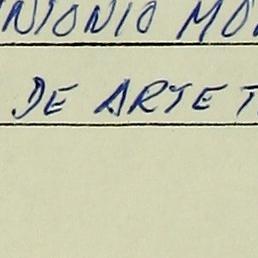 NTONIO MO
DE ARTE T